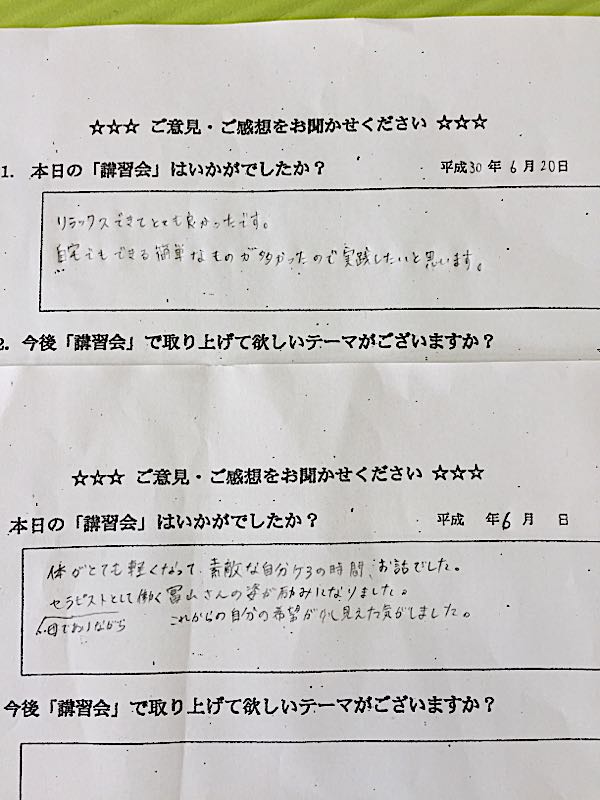 ☆☆☆ ご意見・ご感想をお聞かせください ☆☆☆
1. 本日の「講習会」はいかがでしたか？ 平成30年 6月20日
リラックスできてとても良かったです。
自宅でもできる簡単なものが多かったので実践したいと思います。
2. 今後「講習会」で取り上げて欲しいテーマがございますか？
☆☆☆ ご意見・ご感想をお聞かせください ☆☆☆
本日の「講習会」はいかがでしたか？ 平成 年 6月 日
体がとても軽くなって、素敵な自分ケアの時間、お話でした。
セラピストとして働く冨山さんの姿が励みになりました。
母でありながら これからの自分の希望が少し見えた気がしました。
今後「講習会」で取り上げて欲しいテーマがございますか？